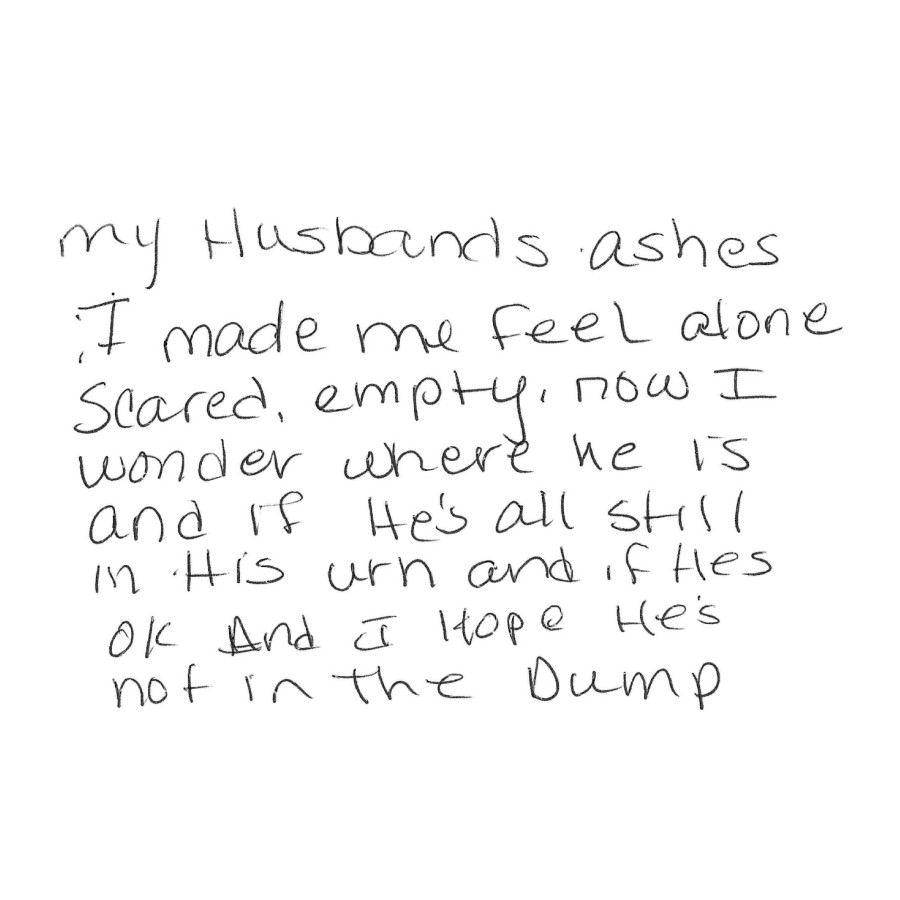 my Husbands ashes
I made me feel alone
Scared, empty, now I
wonder where he is
and if He's all still
in His urn and if Hes
ok And I Hope He's
not in the Dump